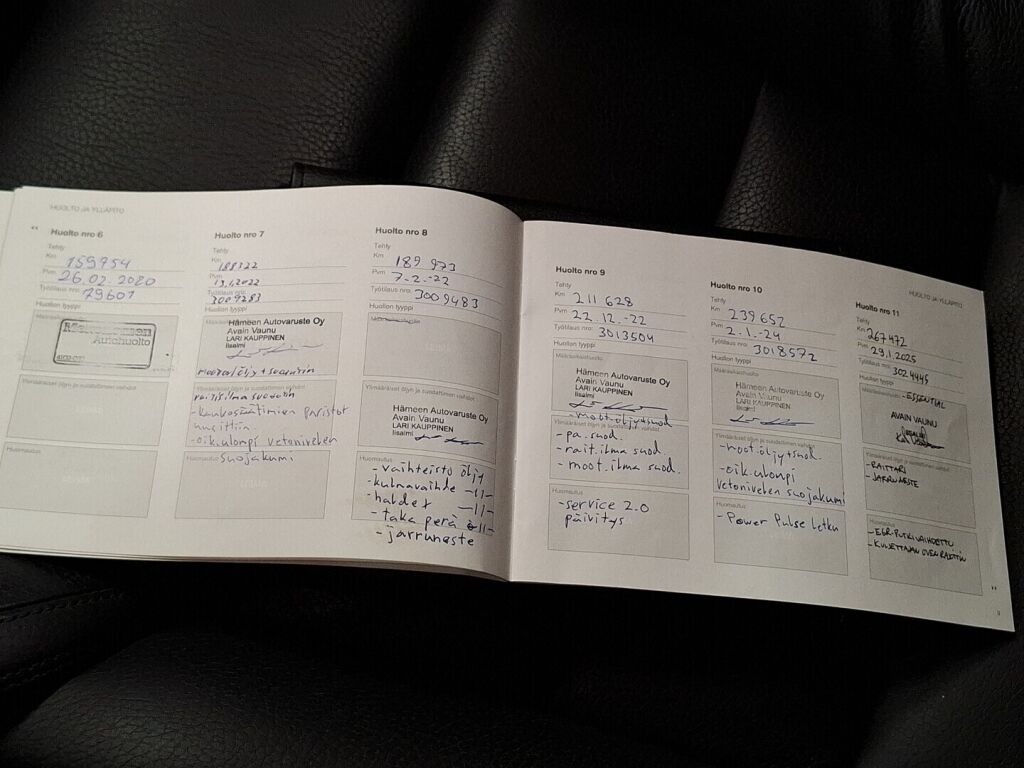 HUOLTO JA YLLÄPITO
Huolto nro 6
Tehty
Km 159754
Pvm 26.02 2020
Työtilaus nro: 79601
Huollon tyyppi
Autohuolto
Ylimääräiset öljyn ja suodattimen vaihdot
Huomautus
Huolto nro 7
Tehty
Km 188322
Pvm 13.1.2022
Työtilaus nro: 3009283
Huollon tyyppi
Hämeen Autovaruste Oy
Avain Vaunu
LARI KAUPPINEN
Iisalmi
Ylimääräiset öljyn ja suodattimen vaihdot
raitisilma suodatin
-kaukosäätimien paristot
-oik.ulompi vetonivelen
Huomautus suojakumi
Huolto nro 8
Tehty
Km 189 973
Pvm 7-2.-22
Työtilaus nro: 3009483
Huollon tyyppi
Määräaikaishuolto
Ylimääräiset öljyn ja suodattimen vaihdot
Hämeen Autovaruste Oy
Avain Vaunu
LARI KAUPPINEN
Iisalmi
Huomautus
-vaihteisto öljy
-kulmavaihde -11-
-haldex -11-
-taka perä -11-
-jarruneste
Huolto nro 9
Tehty
Km 211 628
Pvm 22.12.-22
Työtilaus nro: 3013504
Huollon tyyppi
Määräaikaishuolto
Hämeen Autovaruste Oy
Avain Vaunu
LARI KAUPPINEN
Iisalmi
-moot.öljy+suod
Ylimääräiset öljyn ja suodattimen vaihdot
-pa.suod.
-rait.ilma suod.
-moot.ilma suod.
Huomautus
-service 2.0
päivitys
Huolto nro 10
Tehty
Km 239 652
Pvm 2.-1.-24
Työtilaus nro: 3018572
Huollon tyyppi
Määräaikaishuolto
Hämeen Autovaruste Oy
Avain Vaunu
LARI KAUPPINEN
Iisalmi
Ylimääräiset öljyn ja suodattimen vaihdot
-moot.öljy+suod.
-oik.ulompi
vetonivelen suojakumi
Huomautus
-Power Pulse letku
HUOLTO JA YLLÄPITO
Huolto nro 11
Tehty
Km 267472
Pvm 29.1.2025
Työtilaus nro: 3024445
Huollon tyyppi
Määräaikaishuolto -ESSENTIAL
AVAIN VAUNU
Ylimääräiset öljyn ja suodattimen vaihdot
-RAITTARI
-JARRUNESTE
Huomautus
-EGR-PUTKI VAIHDETTU
-KULJETTAJAN OVEN
9